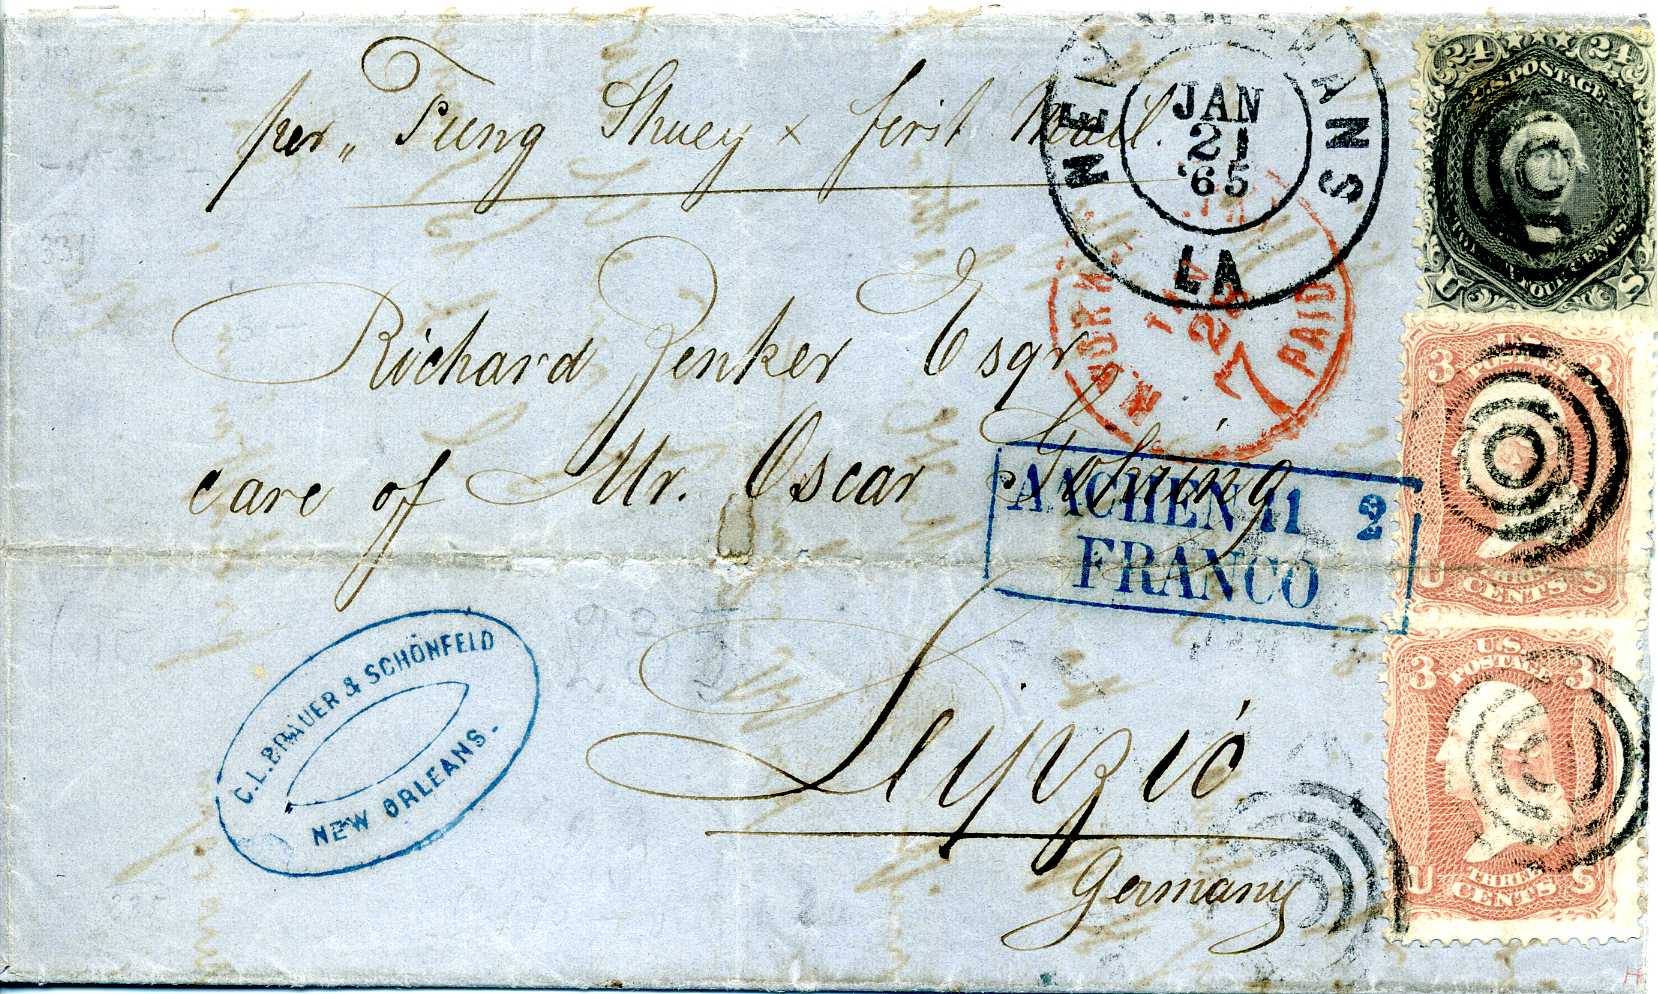 per „ Tung Shuey x first Mail.
NEW ORLEANS
JAN
21
'65
LA
24 24
U.S. POSTAGE
FOUR CENTS
U S
N. YORK
28
7
PAID
Richard Zenker Esqr
care of Mr. Oscar Gohring
AACHEN 11 2
FRANCO
3 3
POSTAGE
U S
CENTS
Leipzic
Germany
C.L. BRAUER & SCHÖNFELD
NEW ORLEANS.
U.S.
POSTAGE
3 3
U THREE S
CENTS